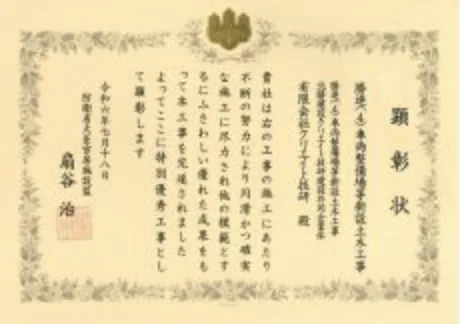 顕彰状
勝連(4)車両整備場等新設土木工事
勝連(4)車両整備場等新設土木工事
有限会社クリエイト技研 殿
貴社は右の工事の施工にあたり
不断の努力により円滑かつ確実
な施工に尽力され他の模範とす
るにふさわしい優れた成果をも
って本工事を完遂されました
よってここに特別優秀工事とし
て顕彰します
令和六年七月十八日
防衛省大臣官房施設監
扇谷 治